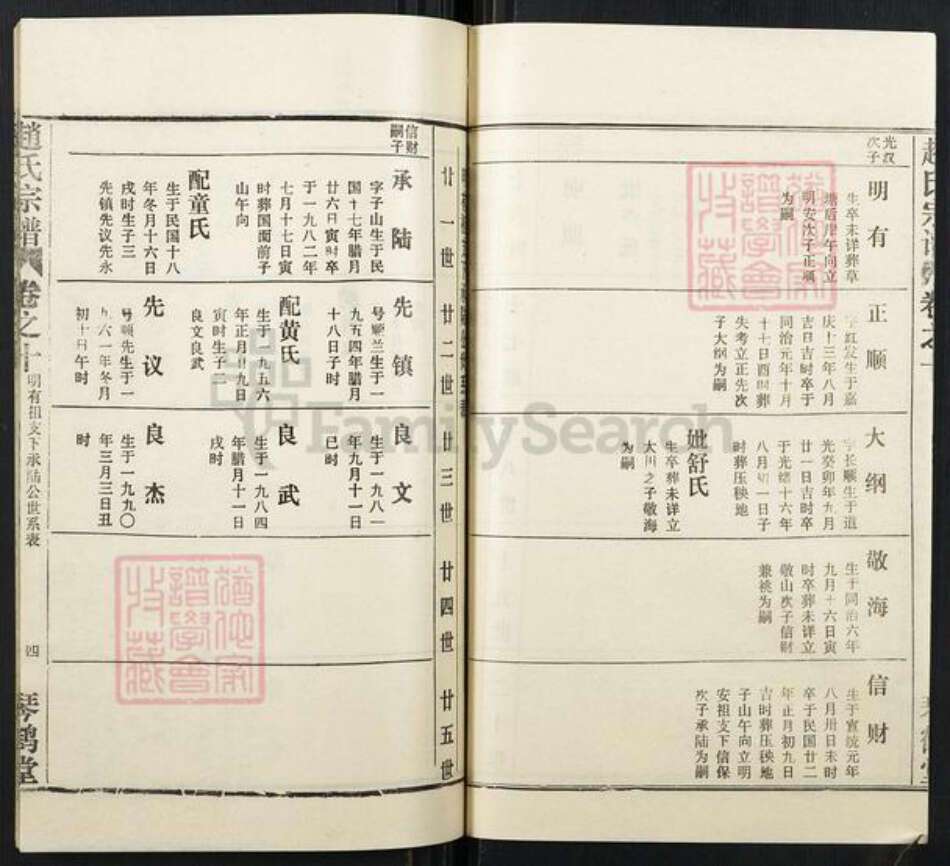 光汉
次子
明有
生卒未详葬草
塘后岸午向立
明安次子正顺
为嗣
正顺
字红发生于嘉
庆十三年八月
吉日吉时卒于
同治元年十月
十七日酉时葬
失考立正先次
子大纲为嗣
大纲
字长顺生于道
光癸卯年九月
廿一日吉时卒
于光绪十六年
八月初一日子
时葬压秧地
妣舒氏
生卒葬未详立
大川之子敬海
为嗣
敬海
生于同治六年
九月十六日寅
时卒葬未详立
敬山次子信财
兼祧为嗣
信财
生于宣统元年
八月卅日未时
卒于民国廿二
年正月初九日
吉时葬压秧地
子山午向立明
安祖支下信保
次子承陆为嗣
廿一世
廿二世
廿三世
廿四世
廿五世
信财
嗣子
承陆
字子山生于民
国十七年腊月
廿六日寅时卒
于一九八二年
七月十七日寅
时葬国蔺前子
山午向
配童氏
生于民国十八
年冬月十六日
戌时生子三
先镇先议先永
先镇
号顺兰生于一
九五四年腊月
十八日子时
配黄氏
生于一九五六
年正月廿九日
寅时生子二
良文良武
先议
号顺先生于一
九六一年冬月
初十日午时
良文
生于一九八一
年九月十一日
巳时
良武
生于一九八四
年腊月十一日
戌时
良杰
生于一九九〇
年三月三日丑
时
赵氏宗谱
卷之十
明有祖支下承陆公世系表
四
琴鹤堂
FamilySearch